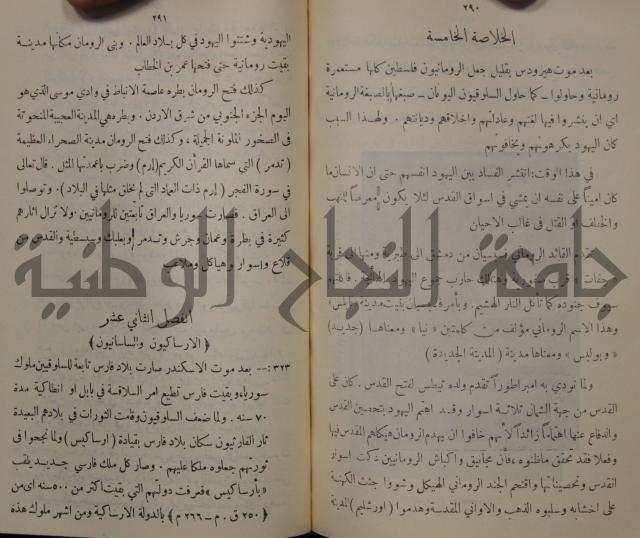 ٢٩٠
الخلاصة الخامسة
بعد موت هيرودس بقليل جعل الرومانيون فلسطين كلها مستعمرة
رومانية وحاولوا ـ كما حاول السلوقيون اليونان ـ صبغها بالصبغة الرومانية
اي ان ينشروا فيها لغتهم وعاداتهم واخلاقهم وديانتهم . ولهذا السبب
كان اليهود يكرهونهم ويخافونهم
في هذا الوقت انتشر الفساد بين اليهود انفسهم حتى ان الانسان ما
كان اميناً على نفسه ان يمشي في اسواق القدس لئلا يكون معرضاً للنهب
والخطف او القتل في غالب الاحيان
تقدم القائد الروماني من دمشق الى
قرب وهنالك حارب جموع اليهود
سيوف جنوده كما تأكل النار الهشيم . وبأمر بنيت مدينة
وهذا الاسم الروماني مؤلف من كلمتين « نيا » ومعناها (جديد)
« وبوليس » ومعناها مدينة ( المدينة الجديدة )
ولما نودي به امبراطوراً تقدم ولده تيطس لفتح القدس . كان على
القدس من جهة الشمال ثلاثة اسوار وقد اهتم اليهود بتحصين القدس
والدفاع عنها اهتماماً زائداً لأنهم خافوا ان يهدم الرومان هيكلهم المقدس فيها
وفعلا فقد تحقق ماظنوه فأن مجانيق واكباش الرومانيين دكت اسوار
القدس وتحصيناتها واقتحم الجند الروماني الهيكل وشووا جثث الكهنة
على اخشابه وسلبوه الذهب والاواني المقدسة وهدموا ( اورشليم ) المدينة
٢٩١
اليهودية وشتتوا اليهود في كل بلاد العالم . وبنى الرومان مكانها مدينة
بقيت رومانية حتى فتحها عمر بن الخطاب
كذلك فتح الرومان بطره عاصمة الانباط في وادي موسى الذي هو
اليوم الجزء الجنوبي من شرق الاردن . وبطره هي المدينة العجيبة المنحوتة
في الصخور الملونة الجميلة ، وكذلك فتح الرومان مدينة الصحراء العظيمة
( تدمر ) التي سماها القرأن الكريم (إرم) وضرب باعمدتها المثل . قال تعالى
في سورة الفجر ( إرم ذات العماد التي لم يخلق مثلها في البلاد ) . وتوصلوا
الى العراق . فصارت سوريا والعراق تابعتين للرومانيين ولا تزال اثارهم
كثيرة في بطرة وعمان وجرش وتدمر وبعلبك وسبسطية والقدس من
قلاع واسوار وهياكل وملاعب
جامعة النجاح الوطنية
الفصل الثاني عشر
( الارساكيون والساسانيون )
٣٢٣ :-- بعد موت الاسكندر صارت بلاد فارس تابعة للسلوقيين ملوك
سوريا وبقيت فارس تطيع امر السلاقسة في بابل او انطاكية مدة
٧٠ سنه . ولما ضعف السلوقيون وقامت الثورات في بلادهم البعيدة
ثار الفارثيون سكان بلاد فارس بقيادة ( ارساكيس ) ولما نجحوا في
ثورتهم جعلوه ملكا عليهم . وصار كل ملك فارسي جديد يلقب
« بأرساكيس » فعرفت دولتهم التي بقيت اكثر من ٥٠٠ سنه اي من
( ٢٥٠ ق . م ــ ٢٦٦ م ) بالدولة الارساكية ومن اشهر ملوك هذه